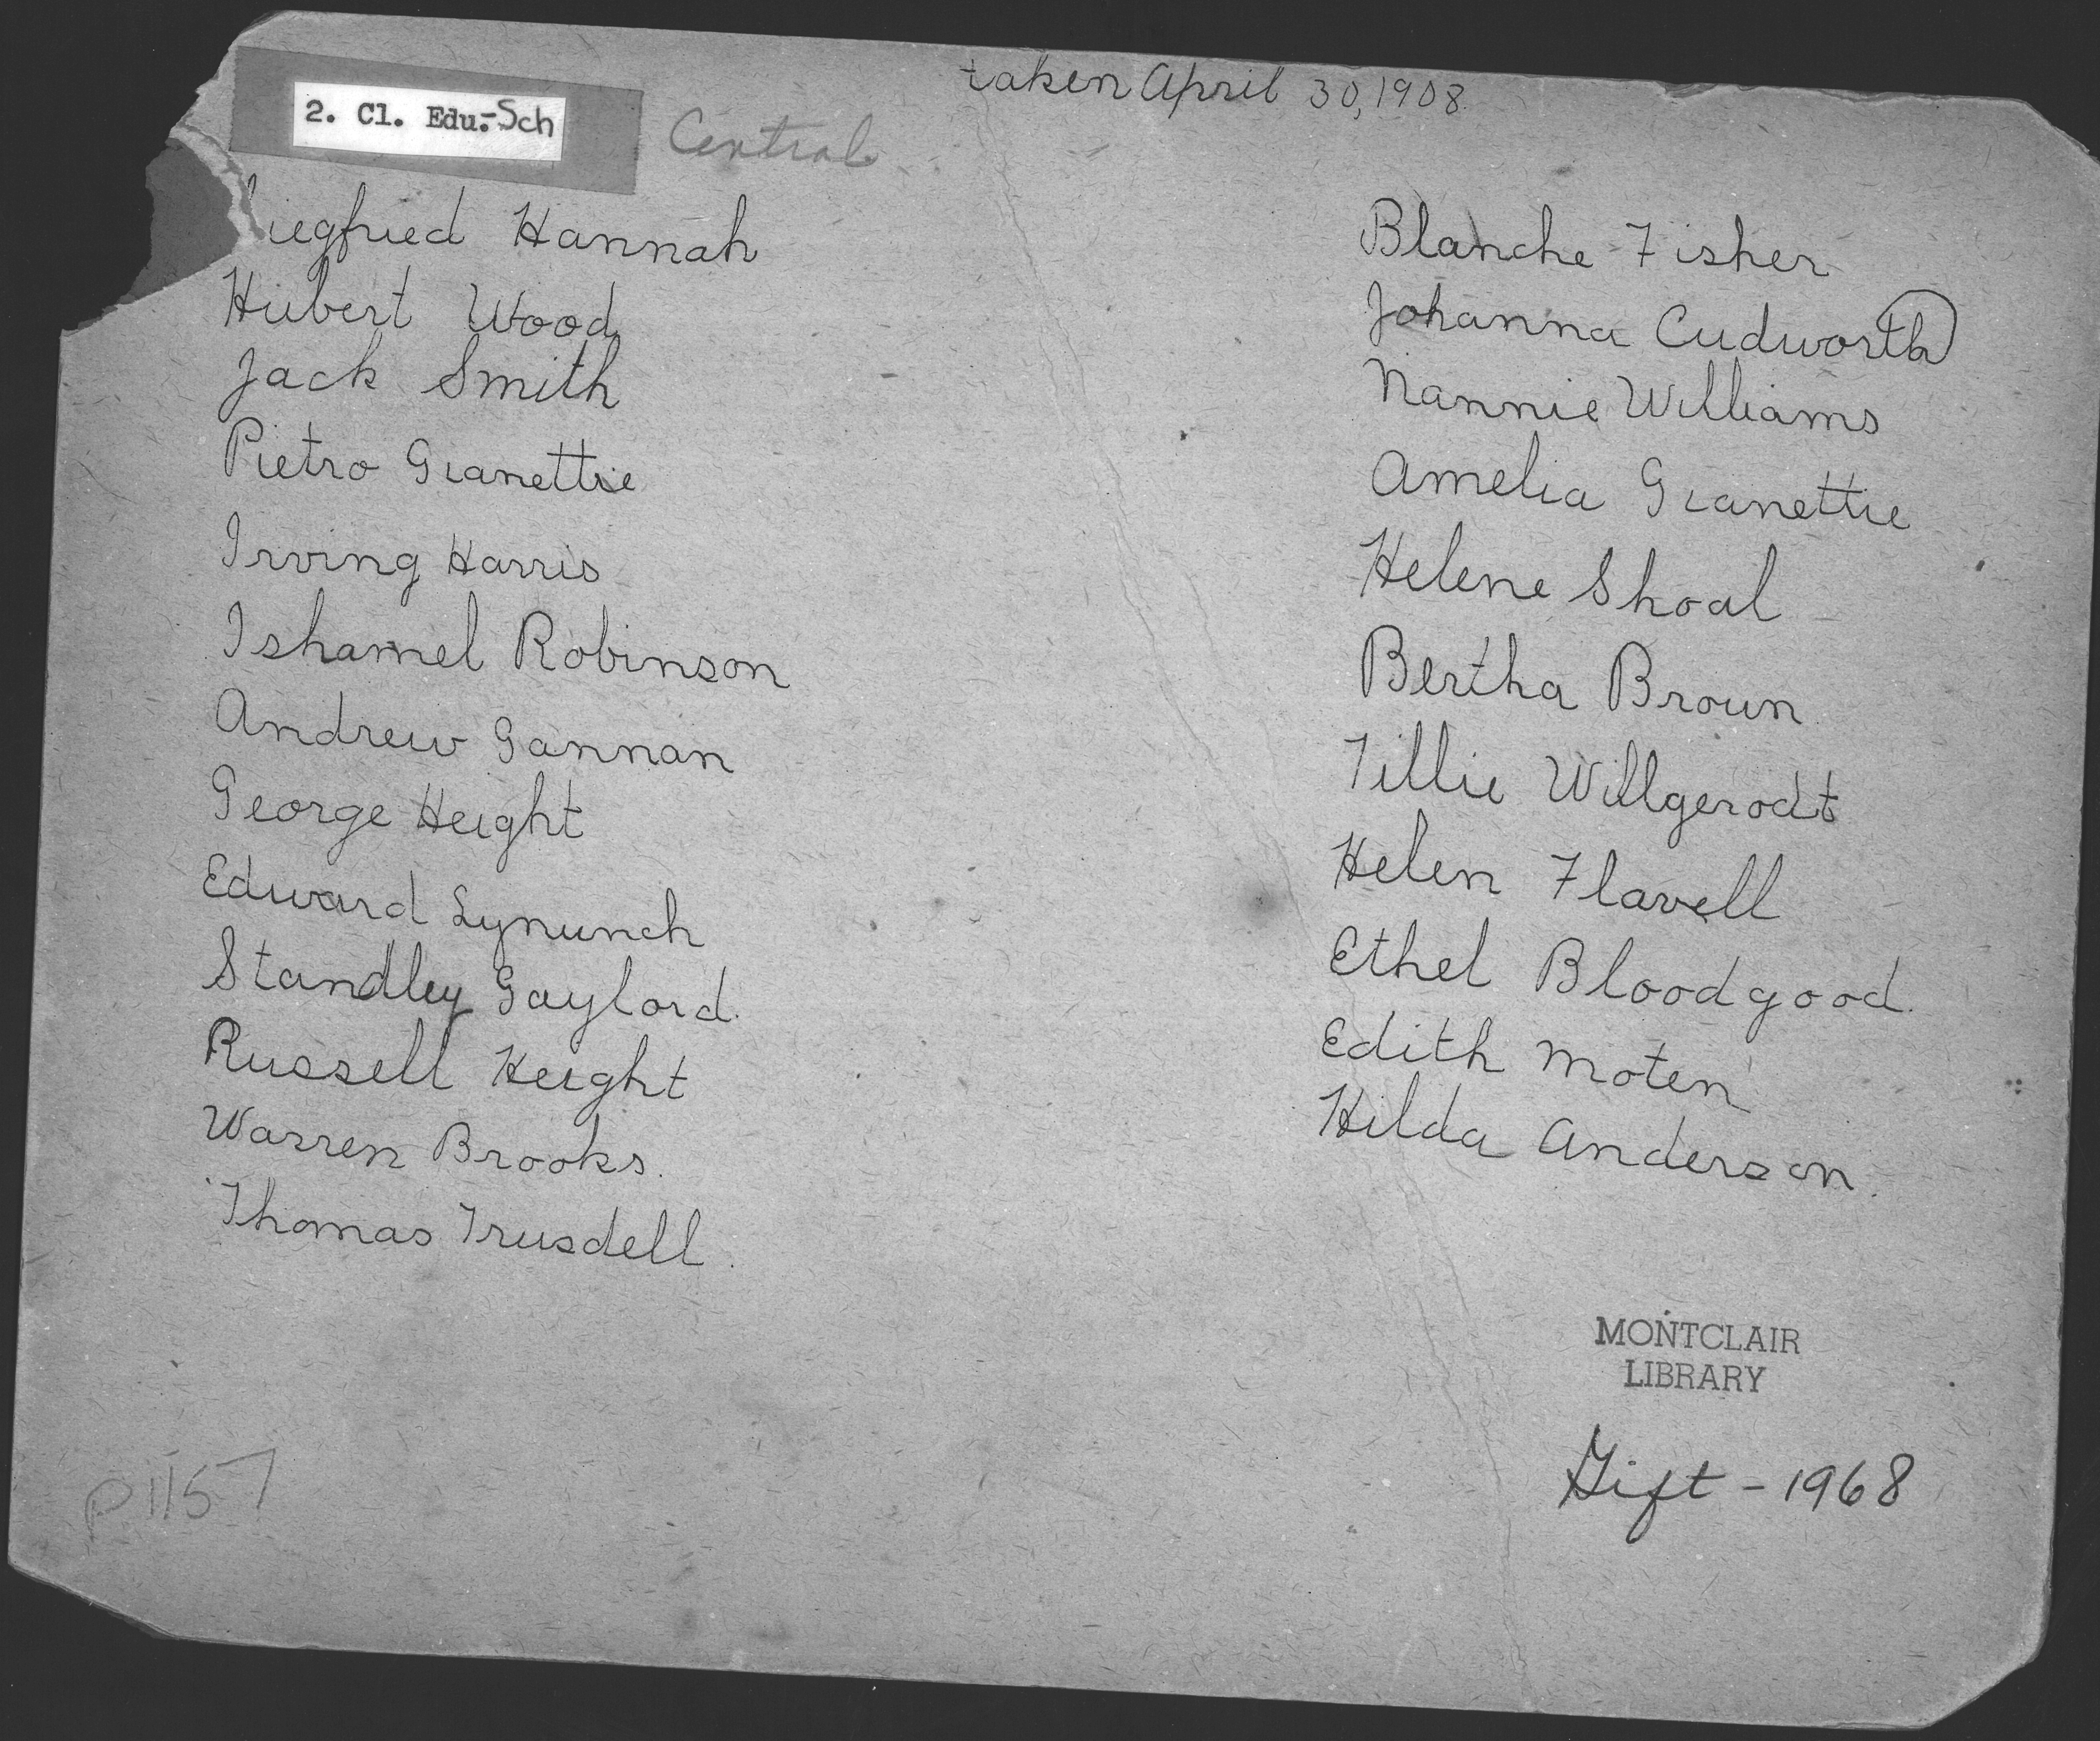 taken April 30, 1908
2. Cl. Edu.-Sch
Central
iegfried Hannah
Hubert Wood
Jack Smith
Pietro Gianettie
Irving Harris
Ishamel Robinson
Andrew Gannan
George Height
Edward Lynunch
Standley Gaylord.
Russell Height
Warren Brooks.
Thomas Trusdell.
Blanche Fisher
Johanna Cudworth
Nannie Williams
Amelia Gianettie
Helene Shoal
Bertha Brown
Tillie Willgerodt
Helen Flavell
Ethel Bloodgood.
Edith Moten
Hilda Anderson.
MONTCLAIR
LIBRARY
Gift - 1968
P1157